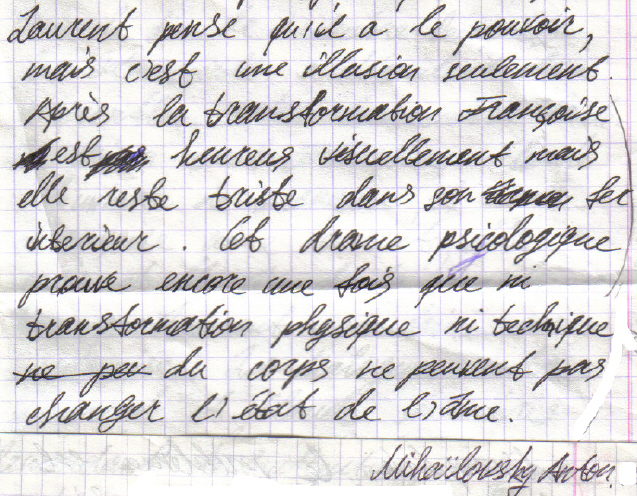 Laurent pense qu'il a le pouvoir,
mais c'est une illusion seulement.
Après la transformation Françoise
est heureus visuellement mais
elle reste triste dans son for
interieur. Cet drame psicologique
prouve encore une fois que ni
transformation physique ni technique
ne peu du corps ne peuvent pas
changer l'état de l'âme.
Mihaïlovsky Anton.